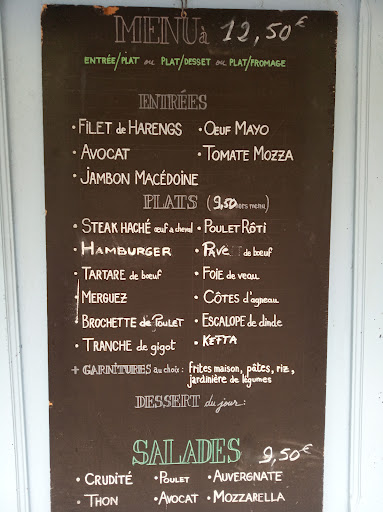 MENU à 12,50€
ENTRÉE/PLAT ou PLAT/DESSET ou PLAT/FROMAGE
ENTRÉES
• FILET de HARENGS • OEUF MAYO
• AVOCAT • TOMATE MOZZA
• JAMBON MACÉDOINE
PLATS (9,50 hors menu)
• STEAK HACHÉ œuf a cheval • POULET RÔTI
• HAMBURGER • de bœuf
• TARTARE de bœuf • FOIE de veau
• MERGUEZ • CÔTES d'agneau
• BROCHETTE de POULET • ESCALOPE de dinde
• TRANCHE de gigot • KEFTA
+ GARNITURES au choix : frites maison, pâtes, riz,
jardinière de légumes
DESSERT du jour :
SALADES 9,50€
• CRUDITÉ • POULET • AUVERGNATE
• THON • AVOCAT • MOZZARELLA